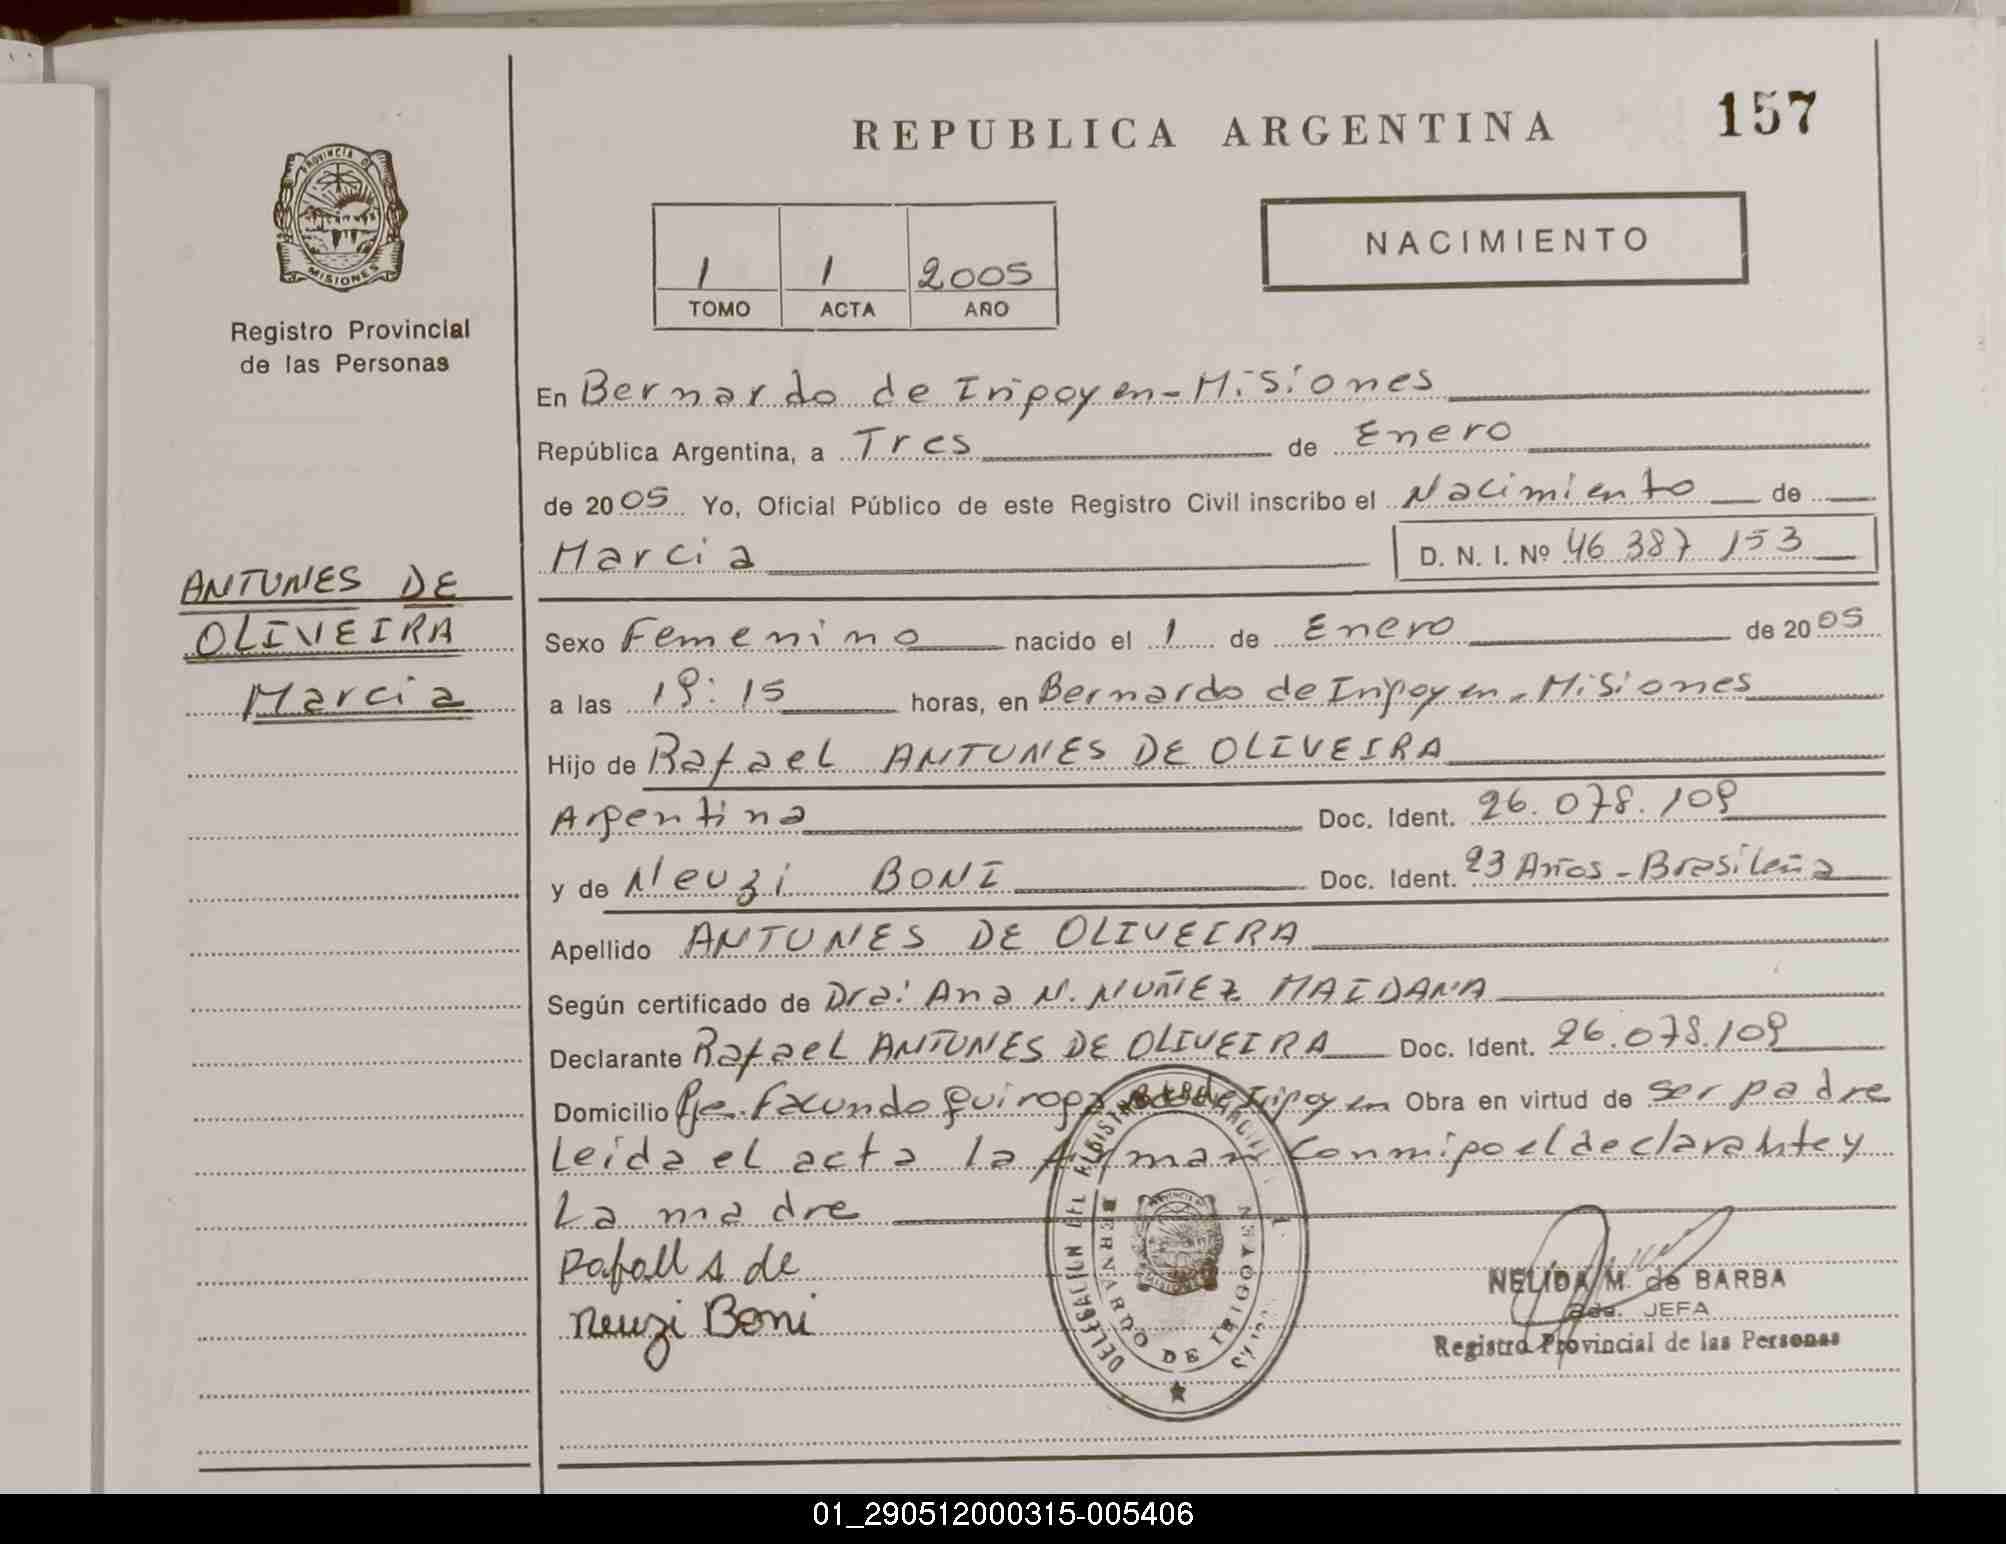 REPUBLICA ARGENTINA
157
PROVINCIA DE
MISIONES
Registro Provincial
de las Personas
1 1 2005
TOMO ACTA AÑO
NACIMIENTO
En Bernardo de Irigoyen - Misiones
República Argentina, a Tres de Enero
de 2005 Yo, Oficial Público de este Registro Civil inscribo el Nacimiento de
Marcia D. N. I. Nº 46 387 153
ANTUNES DE
OLIVEIRA
Marcia
Sexo Femenino nacido el 1 de Enero de 2005
a las 19:15 horas, en Bernardo de Irigoyen - Misiones
Hijo de Rafael ANTUNES DE OLIVEIRA
Argentina Doc. Ident. 26.078.109
y de Neuzi BONI Doc. Ident. 23 Años - Brasileña
Apellido ANTUNES DE OLIVEIRA
Según certificado de Dra: Ana N. NUÑEZ MAIDANA
Declarante Rafael ANTUNES DE OLIVEIRA Doc. Ident. 26.078.109
Domicilio Pje. Facundo Quiroga de Irigoyen Obra en virtud de ser padre
Leida el acta la firman conmigo el declarante y
La madre
Rafaell A de
Neuzi Boni
DELEGACION DEL REGISTRO
BERNARDO DE IRIGOYEN
NELIDA M. de BARBA
2da. JEFA
Registro Provincial de las Personas
01_290512000315-005406